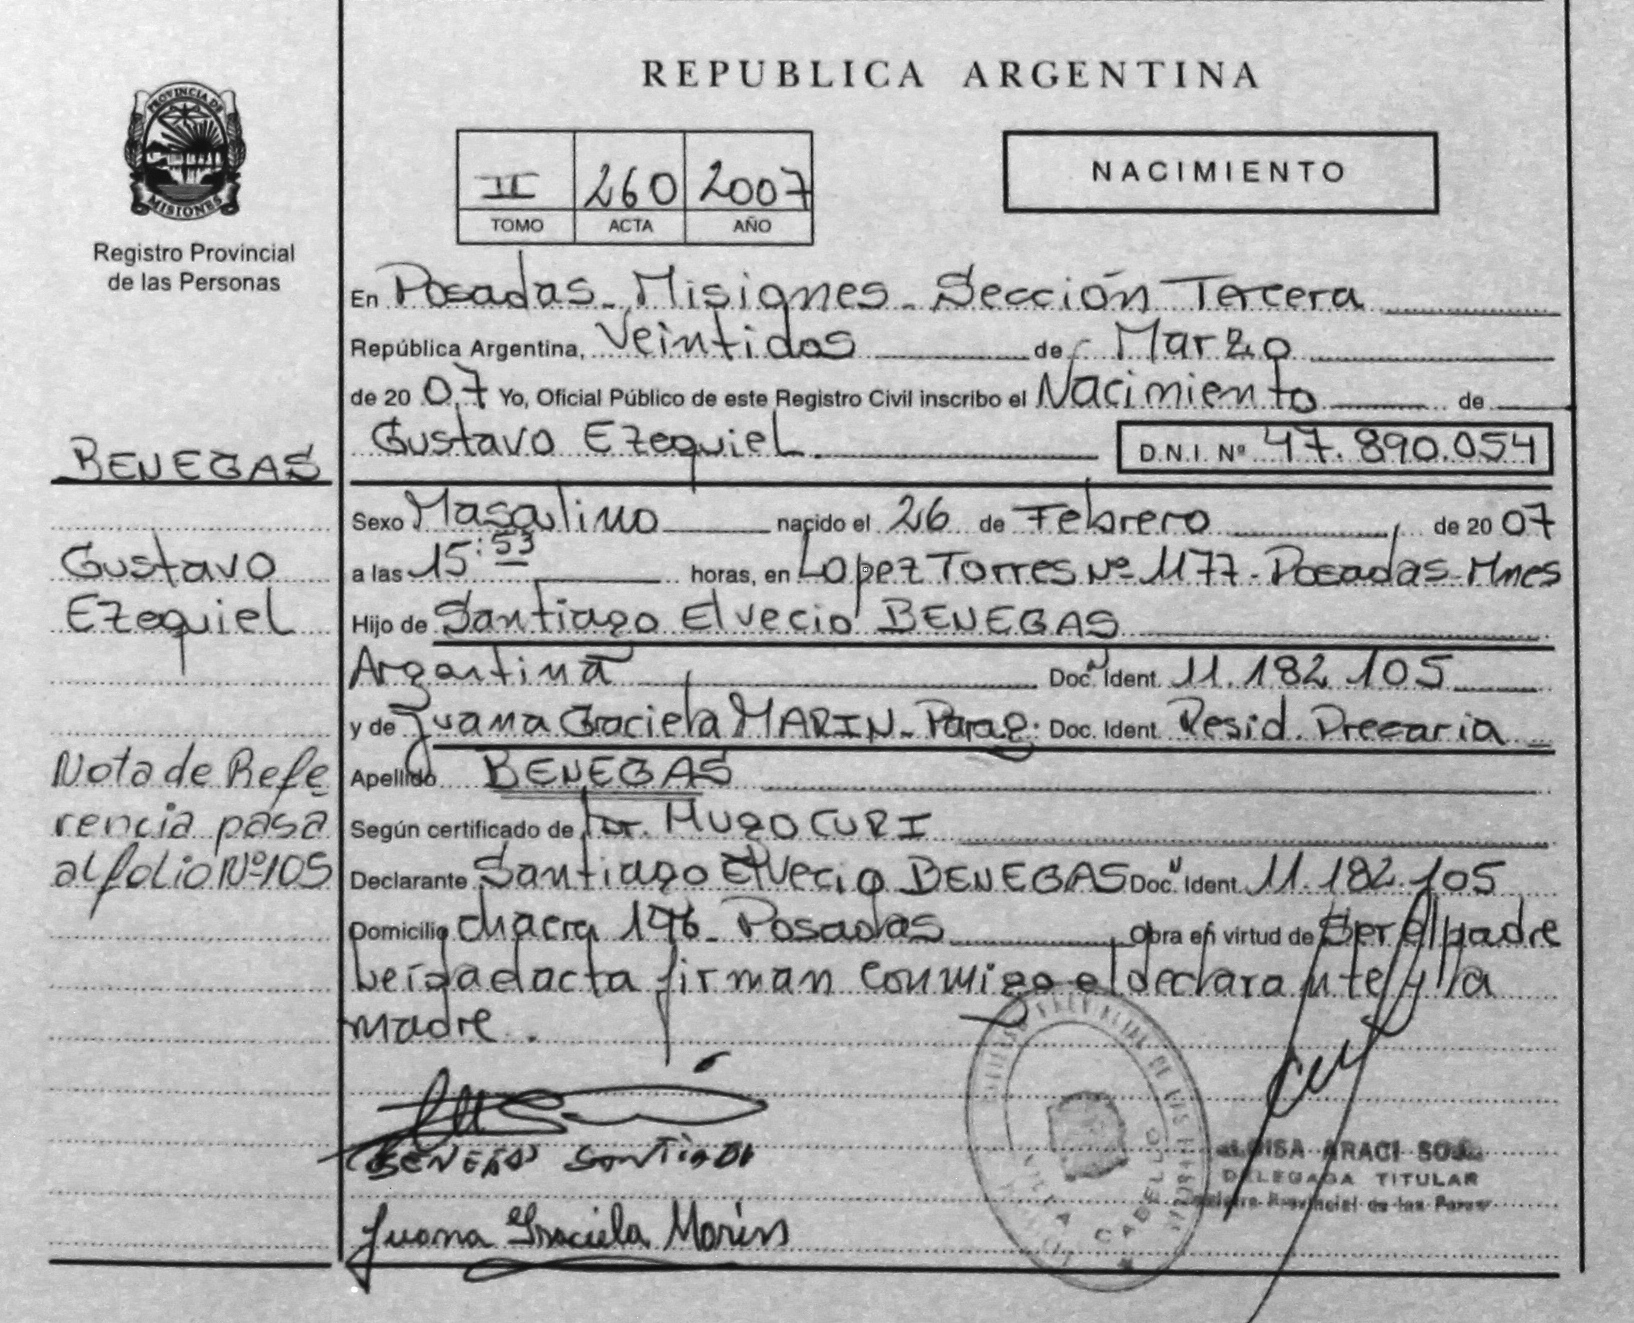 REPUBLICA ARGENTINA
PROVINCIA DE
MISIONES
Registro Provincial
de las Personas
II 260 2007
TOMO ACTA AÑO
NACIMIENTO
En Posadas - Misiones - Sección Tercera
República Argentina, Veintidos de Marzo
de 20 07 Yo, Oficial Público de este Registro Civil inscribo el Nacimiento de
Gustavo Ezequiel D.N.I. Nº 47.890.054
BENEGAS
Gustavo
Ezequiel
Sexo Masculino nacido el 26 de Febrero de 20 07
a las 15:53 horas, en Lopez Torres Nº 1177 - Posadas - Mnes
Hijo de Santiago Elvecio BENEGAS
Argentina Doc. Ident. 11.182.105
y de Juana Graciela MARIN - Parag. Doc. Ident. Resid. Precaria
Apellido BENEGAS
Según certificado de Dr. HUGO CURI
Declarante Santiago Elvecio BENEGAS Doc. Ident. 11.182.105
Domicilio chacra 196 - Posadas obra en virtud de Ser el padre
leida el acta firman conmigo el declarante y la
madre.
Nota de Refe
rencia pasa
al folio Nº 105
BENEGAS Santiago
Juana Graciela Marín
ARACI
DELEGADA TITULAR
Registro Provincial de las Person
CABELLO